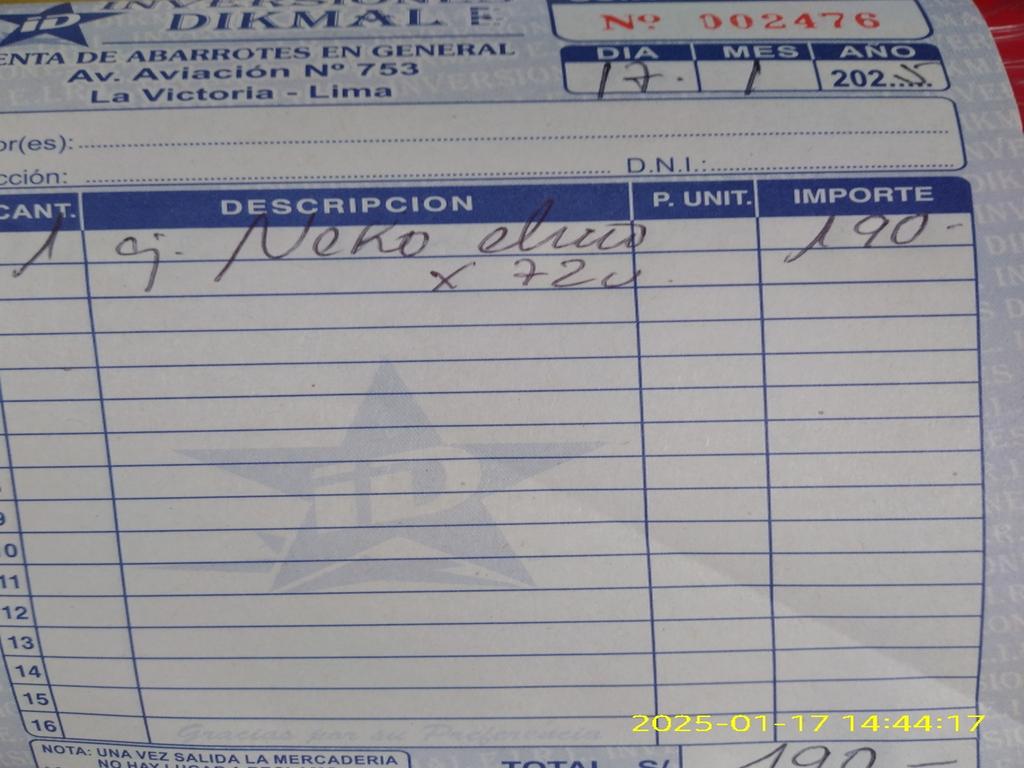 INVERSIONES
iD DIKMAL E
ENTA DE ABARROTES EN GENERAL
Av. Aviación Nº 753
La Victoria - Lima
Nº 002476
DIA MES AÑO
17. 1 202...5
or(es):
cción: D.N.I.:
CANT. DESCRIPCION P. UNIT. IMPORTE
1 cj. Neko 190-
x 72u.
9
10
11
12
13
14
15
16
Gracias por su Preferencia
2025-01-17 14:44:17
NOTA: UNA VEZ SALIDA LA MERCADERIA
NO HAY LUGAR A
TOTAL S/ 190-